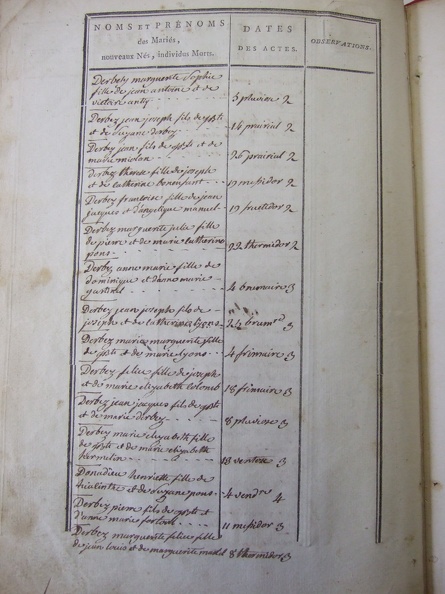 NOMS ET PRÉNOMS
des Mariés,
nouveaux Nés, individus Morts.
DATES
DES ACTES.
OBSERVATIONS.
Derbez marguerite Sophie
fille de jean antoine et de
victoire 5 pluviose 2
Derbez jean joseph fils de
et de derbez 14 prairial 2
Derbez jean fils de et de
marie 26 prairial 2
derbez therese fille de joseph
et de Catherine 19 messidor 2
Derbez françoise fille de jean
jacques et d'angelique manuel 19 fructidor 2
Derbez marguerite julie fille
de pierre et de marie Catherine
pons 22 thermidor 2
Derbez anne marie fille de
dominique et d'anne marie
4 brumaire 3
Derbez jean josephe fils de
josephe et de Catherine 24 3
Derbez marie marguerite fille
de et de marie lyons 4 frimaire 3
Derbez fille de joseph
et de marie elizabeth Colomb 18 frimaire 3
Derbez jean jacques fils de
et de marie derbez 8 pluviose 3
Derbez marie elizabeth fille
de et de marie elizabeth
13 ventose 3
Donadieu henriette fille de
et de pons 4 4
Derbez pierre fils de et
d'anne marie 11 messidor 3
Derbez marguerite fille
de jean louis et de marguerite 8 thermidor 3